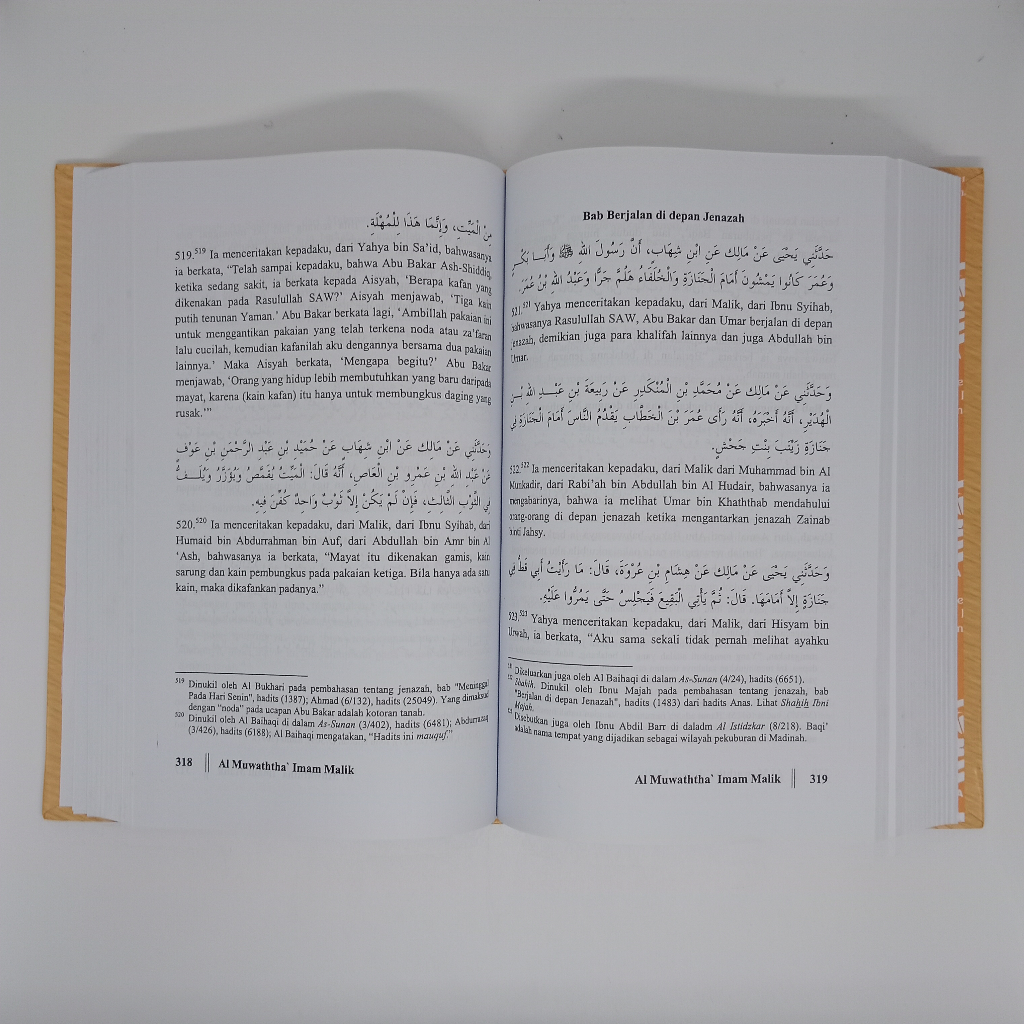 مِنَ الْمَيِّتِ، وَإِنَّمَا هَذَا لِلْمُهْلَةِ.
519.519 Ia menceritakan kepadaku, dari Yahya bin Sa’id, bahwasanya
ia berkata, “Telah sampai kepadaku, bahwa Abu Bakar Ash-Shiddiq
ketika sedang sakit, ia berkata kepada Aisyah, ‘Berapa kafan yang
dikenakan pada Rasulullah SAW?’ Aisyah menjawab, ‘Tiga kain
putih tenunan Yaman.’ Abu Bakar berkata lagi, ‘Ambillah pakaian ini
untuk menggantikan pakaian yang telah terkena noda atau za’faran
lalu cucilah, kemudian kafanilah aku dengannya bersama dua pakaian
lainnya.’ Maka Aisyah berkata, ‘Mengapa begitu?’ Abu Bakar
menjawab, ‘Orang yang hidup lebih membutuhkan yang baru daripada
mayat, karena (kain kafan) itu hanya untuk membungkus daging yang
rusak.’”
وَحَدَّثَنِي عَنْ مَالِكٍ عَنْ ابْنِ شِهَابٍ عَنْ حُمَيْدِ بْنِ عَبْدِ الرَّحْمَنِ بْنِ عَوْفٍ
عَنْ عَبْدِ اللهِ بْنِ عَمْرِو بْنِ الْعَاصِ، أَنَّهُ قَالَ: الْمَيِّتُ يُقَمَّصُ وَيُؤَزَّرُ وَيُلَفُّ
فِي الثَّوْبِ الثَّالِثِ، فَإِنْ لَمْ يَكُنْ إِلاَّ ثَوْبٌ وَاحِدٌ كُفِّنَ فِيهِ.
520.520 Ia menceritakan kepadaku, dari Malik, dari Ibnu Syihab, dari
Humaid bin Abdurrahman bin Auf, dari Abdullah bin Amr bin Al
‘Ash, bahwasanya ia berkata, “Mayat itu dikenakan gamis, kain
sarung dan kain pembungkus pada pakaian ketiga. Bila hanya ada satu
kain, maka dikafankan padanya.”
519 Dinukil oleh Al Bukhari pada pembahasan tentang jenazah, bab "Meninggal
Pada Hari Senin", hadits (1387); Ahmad (6/132), hadits (25049). Yang dimaksud
dengan "noda" pada ucapan Abu Bakar adalah kotoran tanah.
520 Dinukil oleh Al Baihaqi di dalam As-Sunan (3/402), hadits (6481); Abdurrazaq
(3/426), hadits (6188); Al Baihaqi mengatakan, “Hadits ini mauquf.”
318 Al Muwaththa` Imam Malik
Bab Berjalan di depan Jenazah
حَدَّثَنِي يَحْيَى عَنْ مَالِك عَنِ ابْنِ شِهَابٍ، أَنَّ رَسُولَ اللهِ ﷺ وَأَبَا بَكْرٍ
وَعُمَرَ كَانُوا يَمْشُونَ أَمَامَ الْجَنَازَةِ وَالْخُلَفَاءُ هَلُمَّ جَرًّا وَعَبْدُ اللهِ بْنُ عُمَرَ.
521.521 Yahya menceritakan kepadaku, dari Malik, dari Ibnu Syihab,
bahwasanya Rasulullah SAW, Abu Bakar dan Umar berjalan di depan
jenazah, demikian juga para khalifah lainnya dan juga Abdullah bin
Umar.
وَحَدَّثَنِي عَنْ مَالِك عَنْ مُحَمَّدِ بْنِ الْمُنْكَدِرِ عَنْ رَبِيعَةَ بْنِ عَبْدِ اللهِ بْنِ
الْهُدَيْرِ، أَنَّهُ أَخْبَرَهُ، أَنَّهُ رَأَى عُمَرَ بْنَ الْخَطَّابِ يَقْدُمُ النَّاسَ أَمَامَ الْجَنَازَةِ فِي
جَنَازَةِ زَيْنَبَ بِنْتِ جَحْشٍ.
522.522 Ia menceritakan kepadaku, dari Malik dari Muhammad bin Al
Munkadir, dari Rabi’ah bin Abdullah bin Al Hudair, bahwasanya ia
mengabarinya, bahwa ia melihat Umar bin Khaththab mendahului
orang-orang di depan jenazah ketika mengantarkan jenazah Zainab
binti Jahsy.
وَحَدَّثَنِي يَحْيَى عَنْ مَالِك عَنْ هِشَامِ بْنِ عُرْوَةَ، قَالَ: مَا رَأَيْتُ أَبِي قَطُّ فِي
جَنَازَةٍ إِلاَّ أَمَامَهَا. قَالَ: ثُمَّ يَأْتِي الْبَقِيعَ فَيَجْلِسُ حَتَّى يَمُرُّوا عَلَيْهِ.
523.523 Yahya menceritakan kepadaku, dari Malik, dari Hisyam bin
Urwah, ia berkata, “Aku sama sekali tidak pernah melihat ayahku
Dikeluarkan juga oleh Al Baihaqi di dalam As-Sunan (4/24), hadits (6651).
Shahih. Dinukil oleh Ibnu Majah pada pembahasan tentang jenazah, bab
"Berjalan di depan Jenazah", hadits (1483) dari hadits Anas. Lihat Shahih Ibni
Majah.
Disebutkan juga oleh Ibnu Abdil Barr di daladm Al Istidzkar (8/218). Baqi’
adalah nama tempat yang dijadikan sebagai wilayah pekuburan di Madinah.
Al Muwaththa` Imam Malik 319